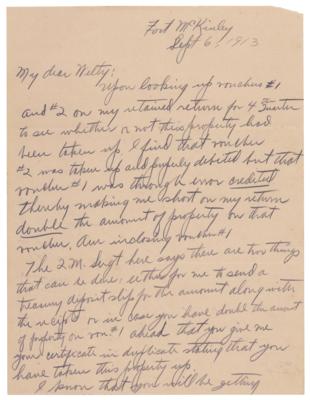 Fort McKinley
Sept 6, 1913
My dear Welty:
Upon looking up vouchers #1
and #2 on my retained return for 4 Quarter
to see whether or not this property had
been taken up, I find that voucher
#2 was taken up and properly debited but that
voucher #1 was through error credited
thereby making me short on my return
double the amount of property on that
voucher. Am inclosing voucher #1
The Q.M. Sergt here says there are two things
that can be done: either for me to send a
treasury deposit slip for the amount along with
the receipts or in case you have double the amt
of property on vou. #1 ahead that you give me
your certificate in duplicate stating that you
have taken this property up.
I know that you will be getting